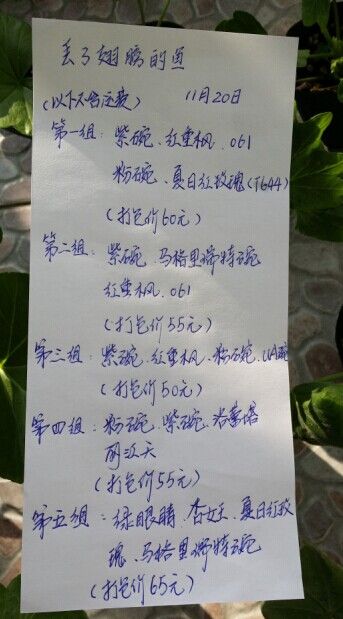 丢了翅膀的鱼
(以下不含运费) 11月20日
第一组：紫砣、红重枫、061
粉砣、夏日红玫瑰(T644)
(打包价60元)
第二组：紫砣、马格里特砣
红重枫、061
(打包价55元)
第三组：紫砣、红重枫、粉砣、UA砣
(打包价50元)
第四组：粉砣、紫砣、洛蕾塔
丽江天
(打包价55元)
第五组：绿眼睛、杏女王、夏日红玫
瑰、马格里特砣
(打包价65元)